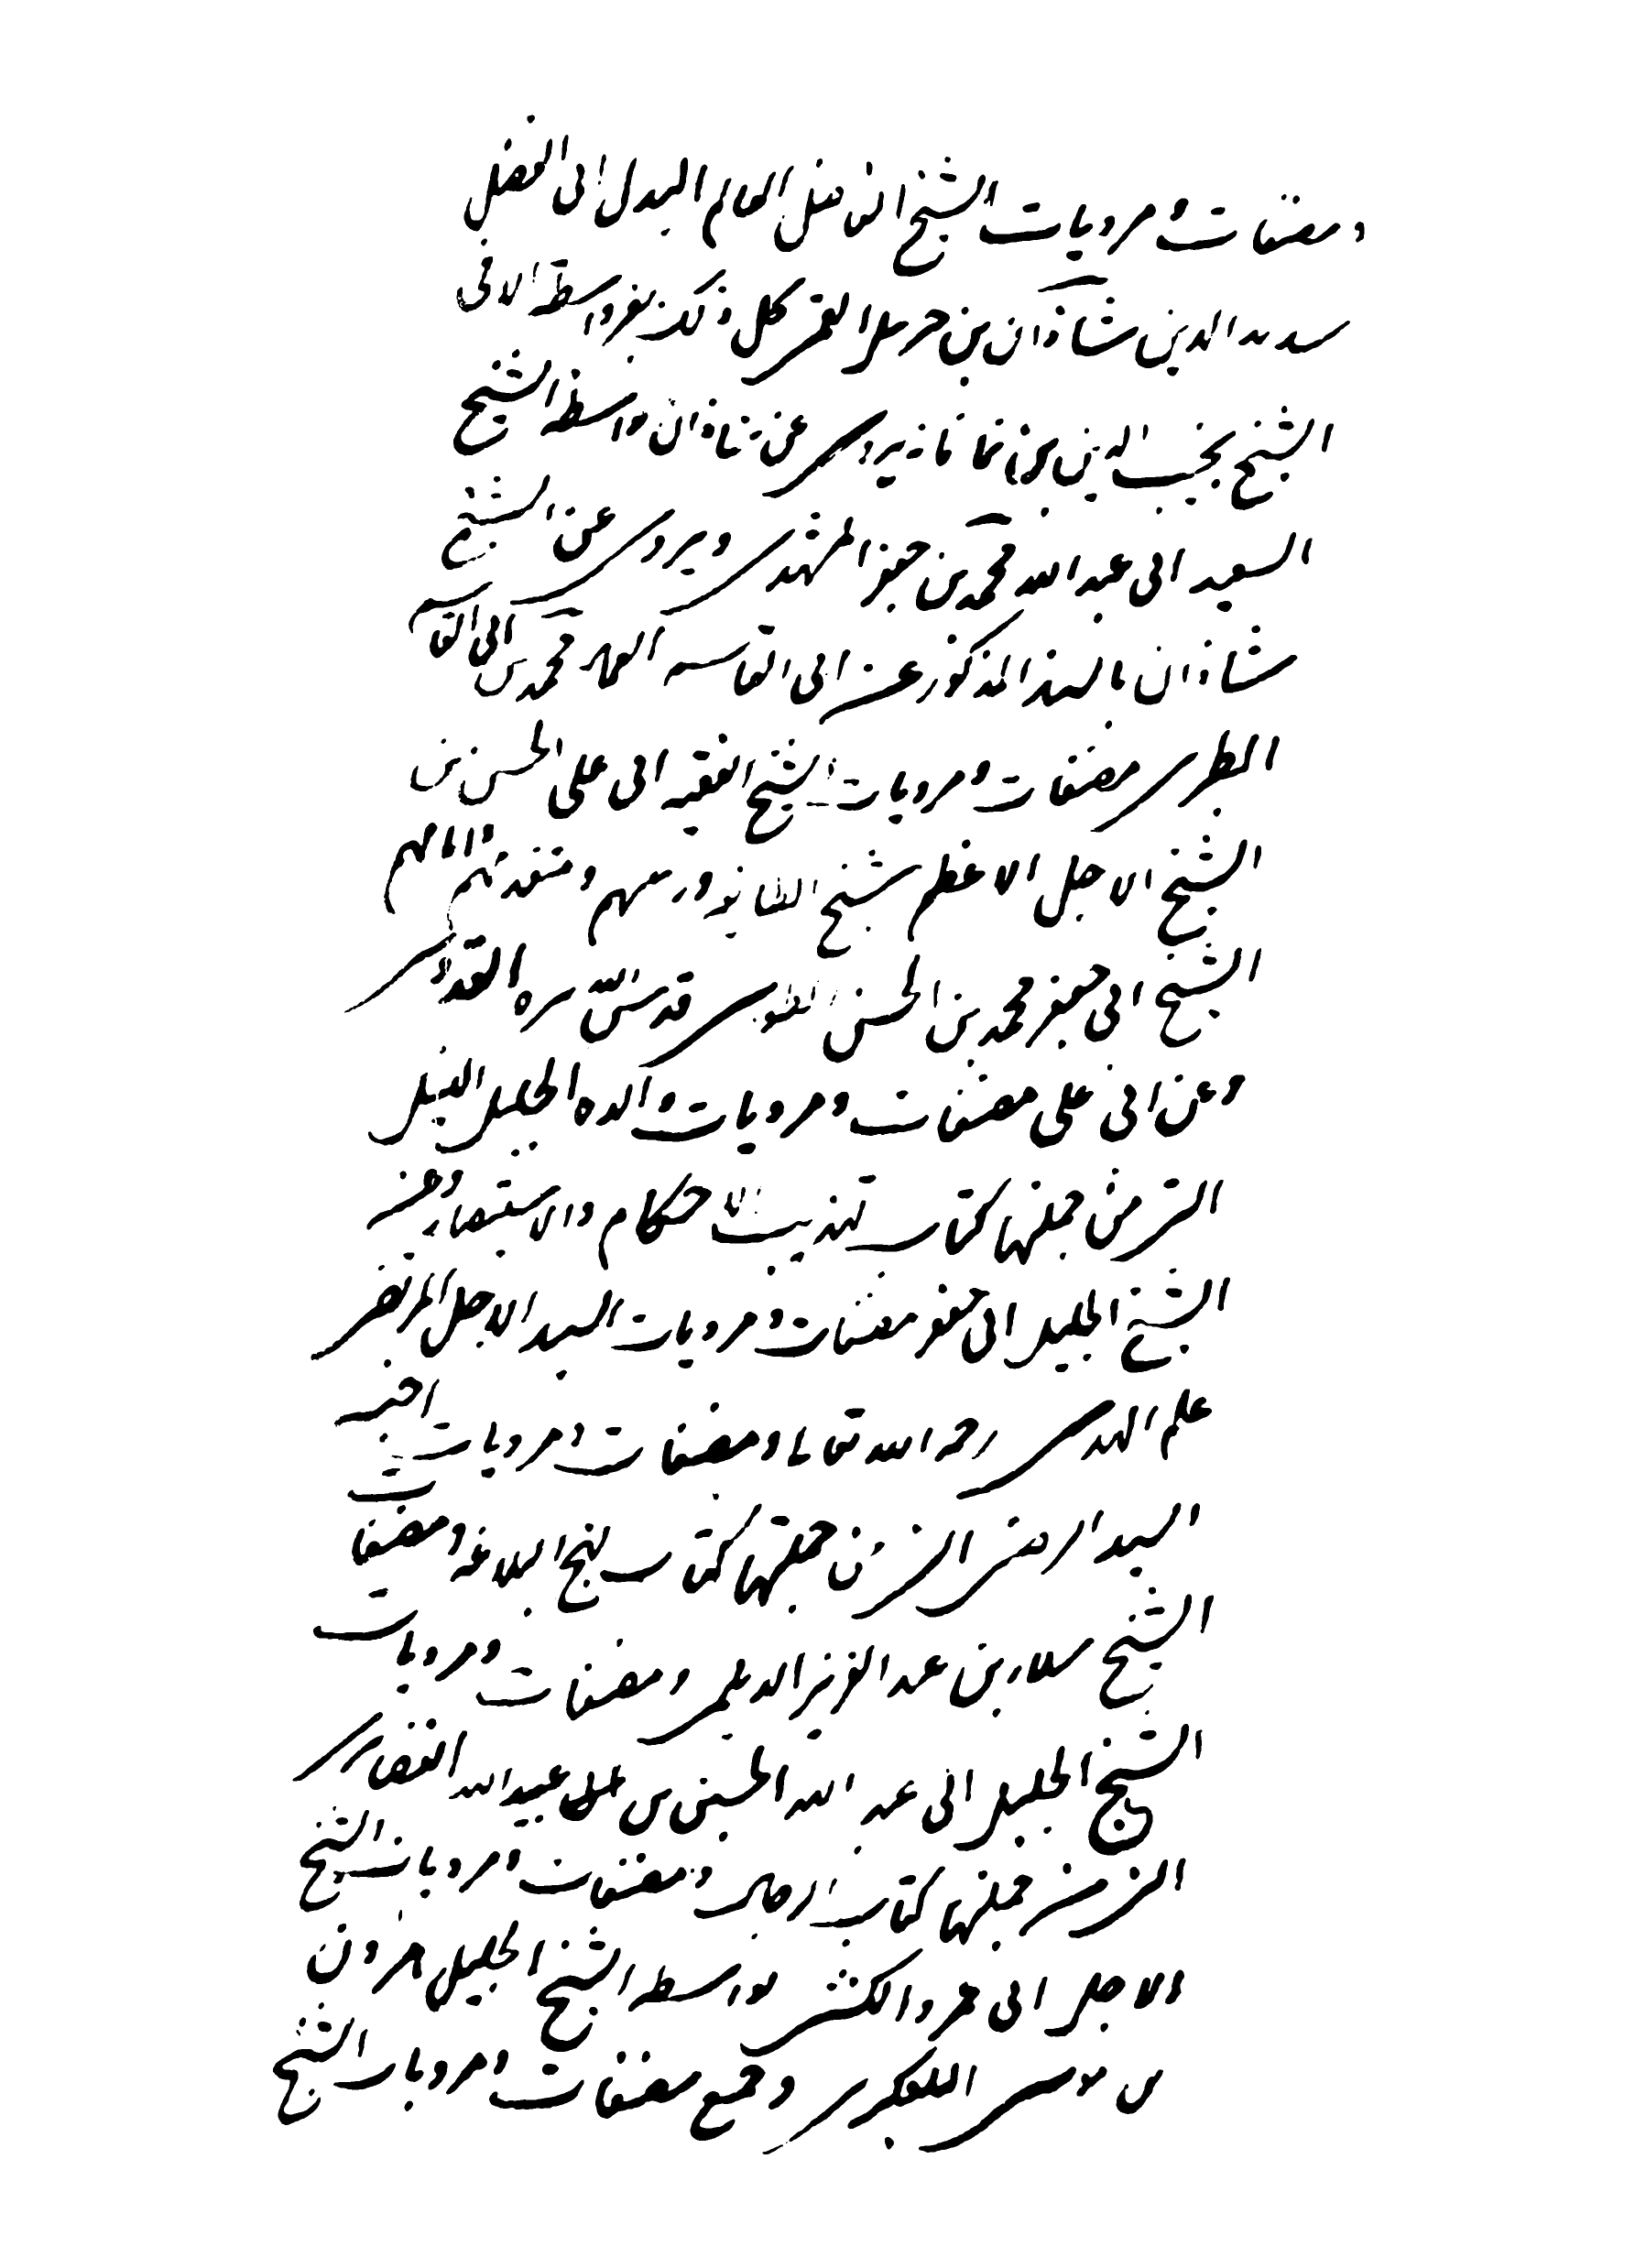 و مصنفات و مرويات الشيخ الفاضل العالم البدل ابى الفضل
سديد الدين شاذان بن جبرئيل القمى كل ذلك بغير واسطة الا فى
الشيخ نجيب الدين بن نما فانه يروى عن شاذان بواسطة الشيخ
السعيد ابى عبد الله محمد بن جعفر المشهدى و يروى عن الشيخ
شاذان بالسند المذكور عن ابى القاسم العماد محمد بن ابى القاسم
الطبرى مصنفات و مرويات الشيخ الفقيه ابى على الحسن بن
الشيخ الاجل الاعظم شيخ الطائفة و رئيسهم و امامهم
الشيخ ابى جعفر محمد بن الحسن الطوسى قدس الله سره القدوسى
و عن ابى على مصنفات و مرويات والده الجليل النبيل
التى من جملتها كتاب تهذيب الاحكام و الاستبصار و عن
الشيخ الجليل ابى جعفر مصنفات و مرويات السيد الاجل المرتضى
علم الهدى رحمه الله تعالى و مصنفات و مرويات اخيه
السيد الرضى التى من جملتها كتاب نهج البلاغه و مصنفات
الشيخ سلار بن عبد العزيز الديلمى و مصنفات و مرويات
الشيخ الجليل ابى عبد الله الحسين بن عبيد الله الغضائرى
التى من جملتها كتاب الرجال و مصنفات و مرويات الشيخ
الاجل ابى عمرو الكشى بواسطه الشيخ الجليل هرون
بن موسى التلعكبرى و جميع مصنفات و مرويات الشيخ